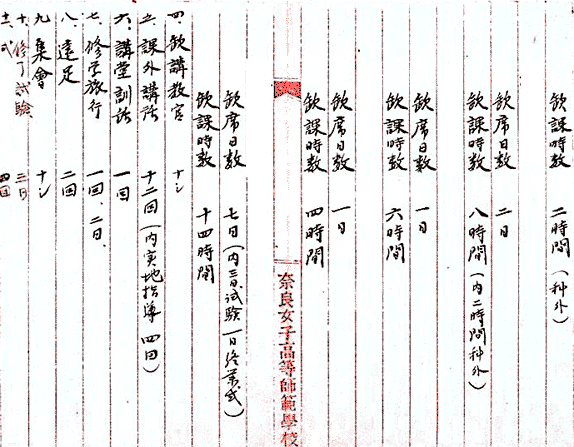 欽課時数 二時間(科外)
欽席日数 二日
欽課時数 八時間(内二時間科外)
欽席日数 一日
欽課時数 六時間
欽席日数 一日
欽課時数 四時間
奈良女子高等師範學校
欽席日数 七日(内三日試験一日終業式)
欽課時数 十四時間
四、欽講教官 ナシ
五、課外講話 十二回(内実地指導 四回)
六、講堂訓話 一回
七、修学旅行 一回、二日
八、遠足 二回
九、集會 ナシ
十、修了試験 三日
十一、式 四回